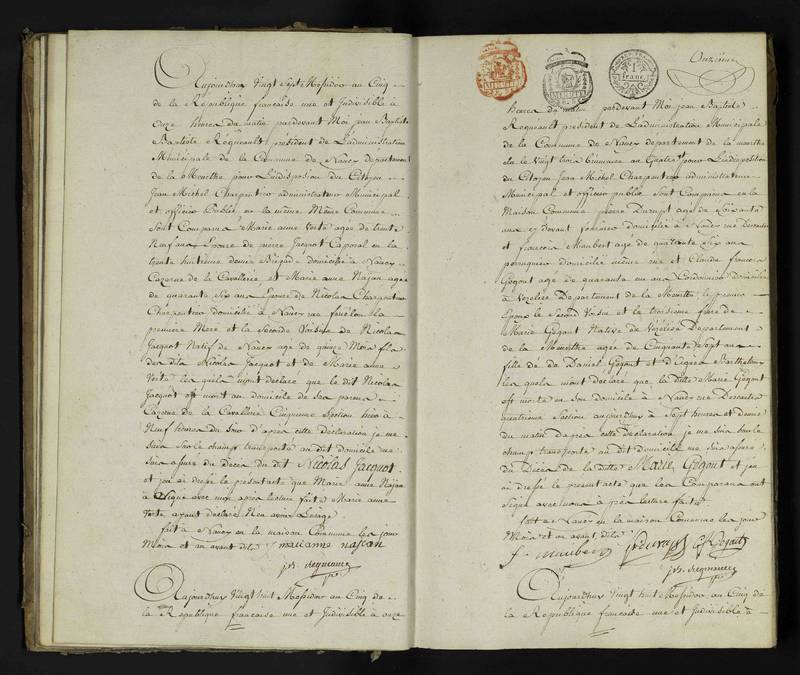 Aujourdhuy Vingt Sept Messidor au Cinq
de la Republique francaise une et Indivisible à
Onze heures du matin pardevant Moi jean Baptiste
Baptiste Roquault président de L'administration
Municipale de la Commune de Nancy departement
de la Meurthe pour L'indisposion du Citoyen
Jean Michel Charpentier administrateur Municipal
et officier Public en la même Même Commune
Sont Comparu Marie anne Votte agée de trente
Neuf ans Epouse de pierre Jacquot Caporal en la
trente huitieme demie Brigad domiciliée à Nancy
Cazerne de la Cavallerie, et Marie anne Najan agée
de quarante Six ans Epouse de Nicolas Charpentier
Charpentier domicilié à Nancy rue fenélon la
première Mere et la Seconde Voisine de Nicolas
Jacquot Natif de Nancy agé de quinze Mois fils
des dits Nicolas Jacquot et de Marie anne
Votte les quels m'ont declaré que le dit Nicolas
Jacquot est mort au domicile de Ses parens
Cazerne de la Cavallerie Cinquieme Section hier à
Neuf heures du Soir d'après cette déclaration je me
Suis Sur le champ transporté au dit domicile me
Suis assuré du Décès du dit Nicolas Jacquot
et j'en ai dressé le present acte que Marie anne Najan
à Signé avec moi après lecture fait Marie anne
Votte ayant déclaré Nen avoir L'usage
fait à Nancy en la maison Commune les jour
Mois et an avant dits marianne nasean
Aujourdhuy Vingt huit Messidor au Cinq de
la Republique francaise une et Indivisible à onze
Onzieme
1 franc
heures du matin pardevant Moi jean Baptiste
Roquault president de L'administration Municipale
de la Commune de Nancy departement de la meurthe
du Citoyen Jean Michel Charpentier administrateur
Municipal et officier public Sont Comparu en la
Maison Commune pierre Durupt agé de Soixante
ans domicilié à Nancy rue Descartes
et francois Maubert agé de quarante Six ans
perruquier domicilié même rue et Claude francois
Gogout agé de quarante un ans Domicilié
à Vezelize Departement de la Meurthe le premier
Epoux le Second Voisin et le troisieme frere de
Marie Gogout Native de Vezelize Departement
de la Meurthe agée de Cinquante Sept ans
fille de de Daniel Gogout et
les quels mont declaré que la ditte Marie Gogout
est morte en Son domicile à Nancy rue Descartes
quatrieme Section aujourdhuy à Sept heures et demie
du matin dapres cette Declaration je me Suis Sur le
champ transporté au dit domicile me Suis assuré
du Décès de la ditte Marie, Gogout et jen
ai dressé le present acte que les Comparans ont
Signé avec moi après lecture faitte
fait à Nancy en la maison Commune les jour
Mois et an avant dits
f. maubert
Aujourdhuy Vingt huit Messidor au Cinq de
la Republique francaise une et Indivisible à